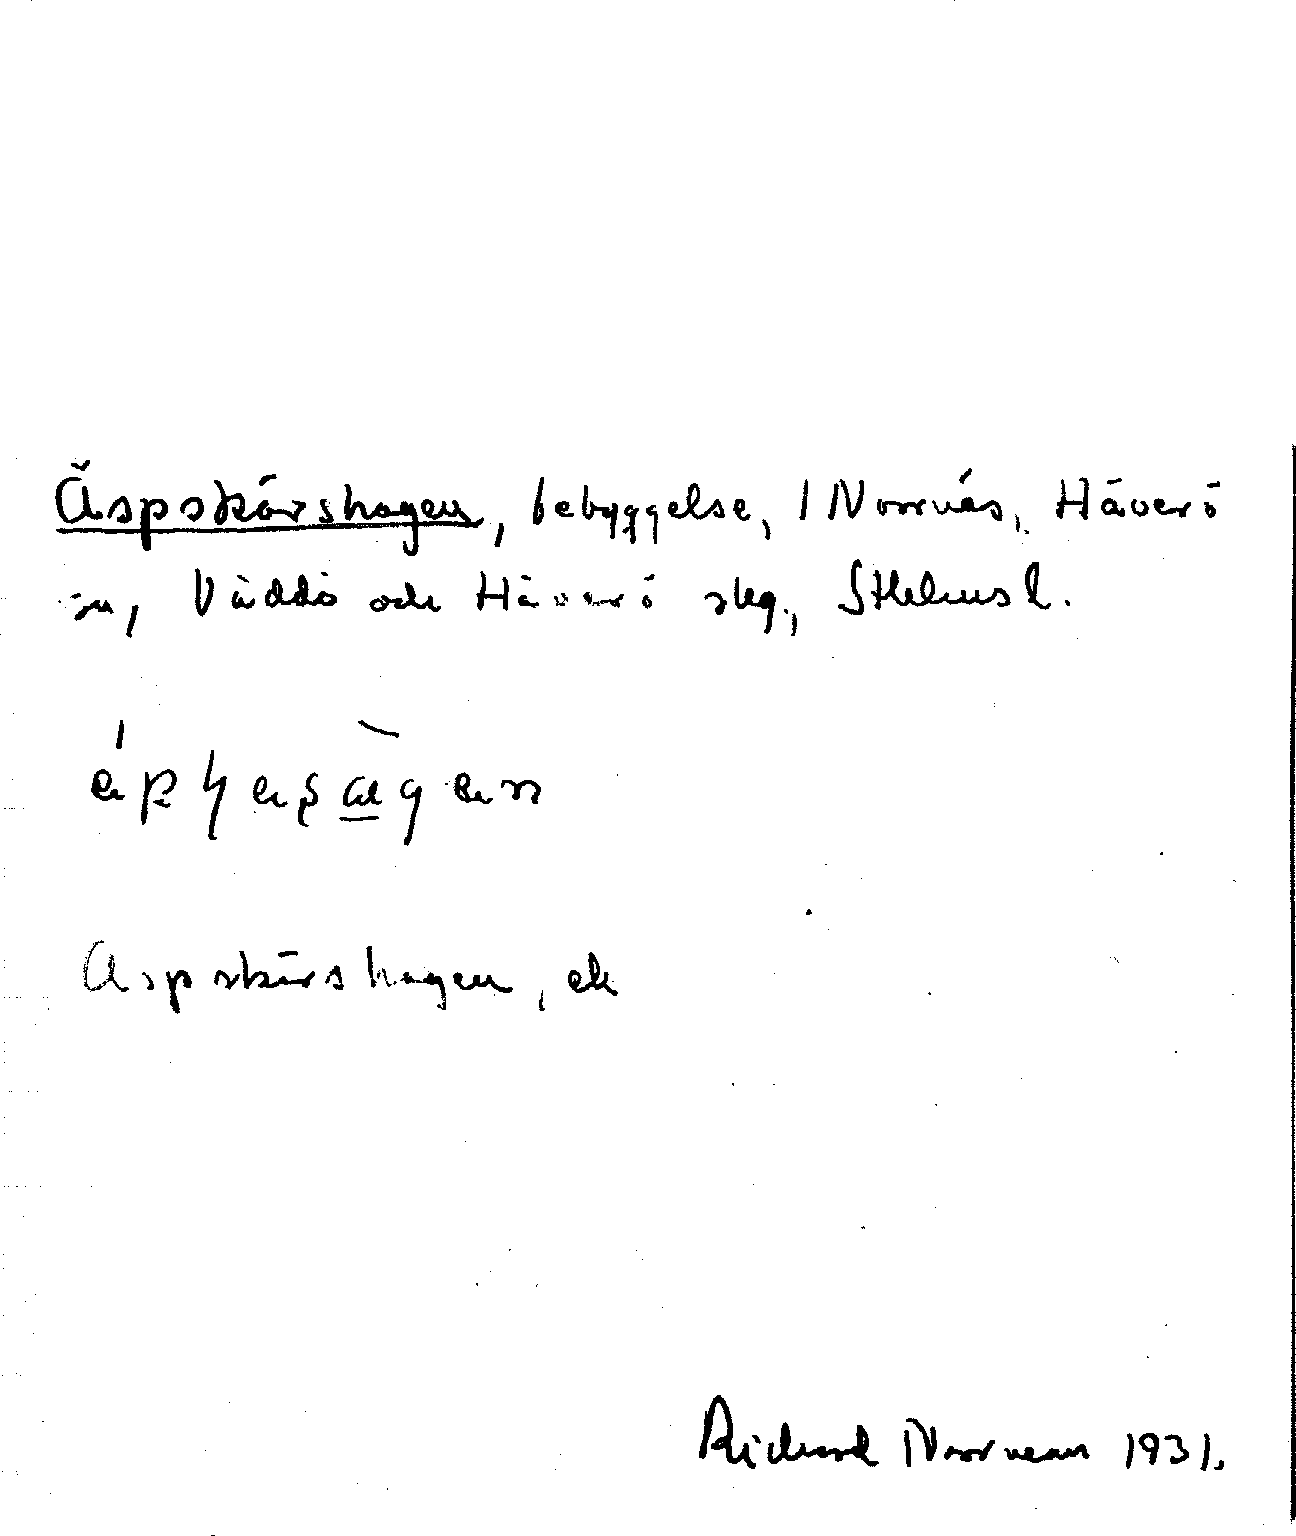 Äspskärshagen, bebyggelse, 1 Norrnäs, Häverö
sn, Väddö och Häverö skg., Sthlms l.
Aspskärshagen, ek
Richard Norrman 1931.